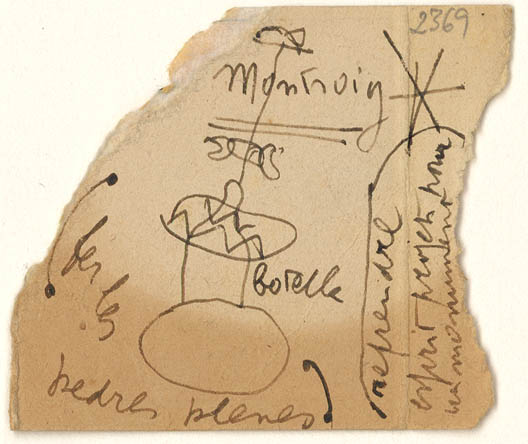 2369
Montroig
fer-les
botella
pedres planes
reprendre
esprit projets pour
un monument